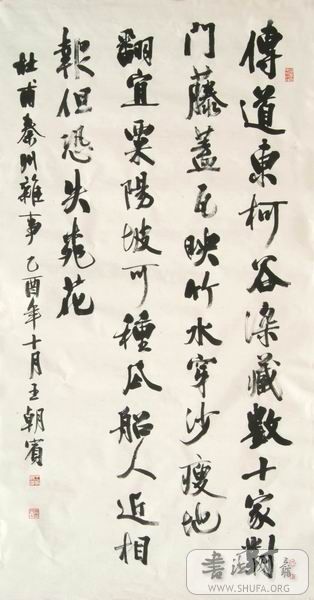 傳道東柯谷深藏數十家對
門藤蓋瓦映竹水穿沙瘦地
翻宜粟陽坡可種瓜船人近相
報但恐失桃花
杜甫秦州雜事 乙酉年十月王朝賓
WWW.SHUFA.ORG